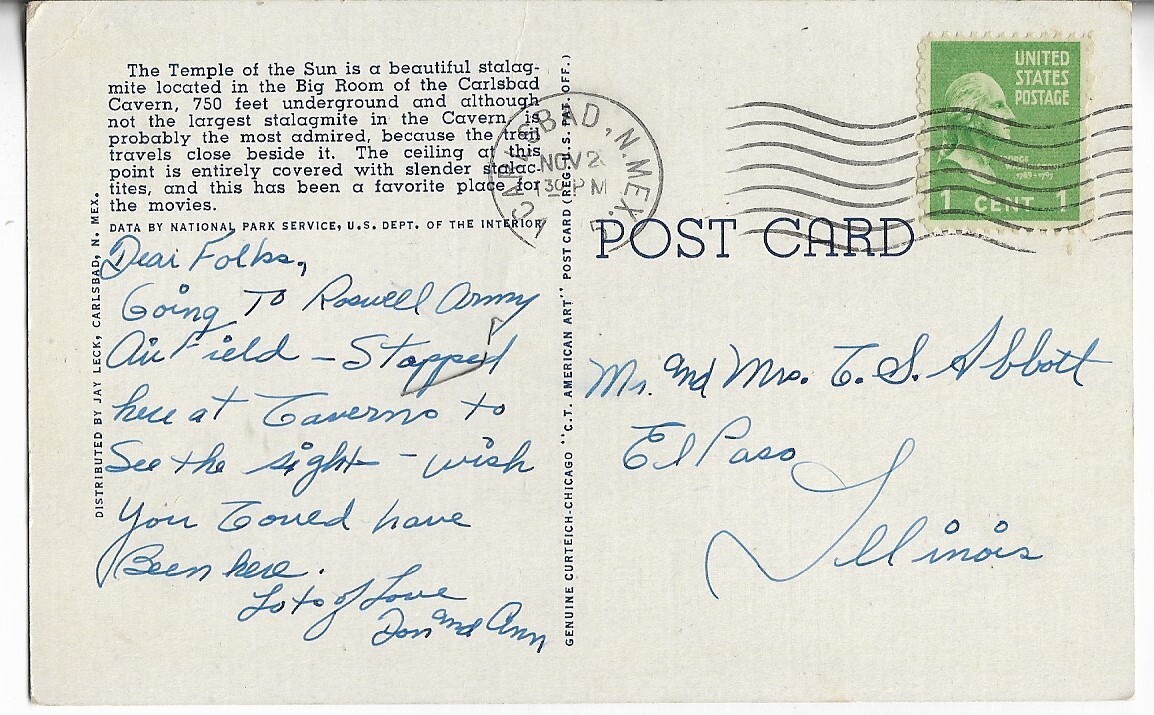 The Temple of the Sun is a beautiful stalag-
mite located in the Big Room of the Carlsbad
Cavern, 750 feet underground and although
not the largest stalagmite in the Cavern, is
probably the most admired, because the trail
travels close beside it. The ceiling at this
point is entirely covered with slender stalac-
tites, and this has been a favorite place for
the movies.
DATA BY NATIONAL PARK SERVICE, U.S. DEPT. OF THE INTERIOR
DISTRIBUTED BY JAY LECK, CARLSBAD, N. MEX.
Dear Folks,
Going To Roswell Army
Air Field - Stopped
here at Caverns to
See the sight - wish
You Coued have
Been here.
Lots of Love
Don and Ann
GENUINE CURTEICH-CHICAGO "C.T. AMERICAN ART" POST CARD (REG. U.S. PAT. OFF.)
CARLSBAD, N. MEX.
NOV 2
30 PM
UNITED
STATES
POSTAGE
1789-1797
1 CENT 1
POST CARD
Mr. and Mrs. C. S. Abbott
El Paso
Illinois